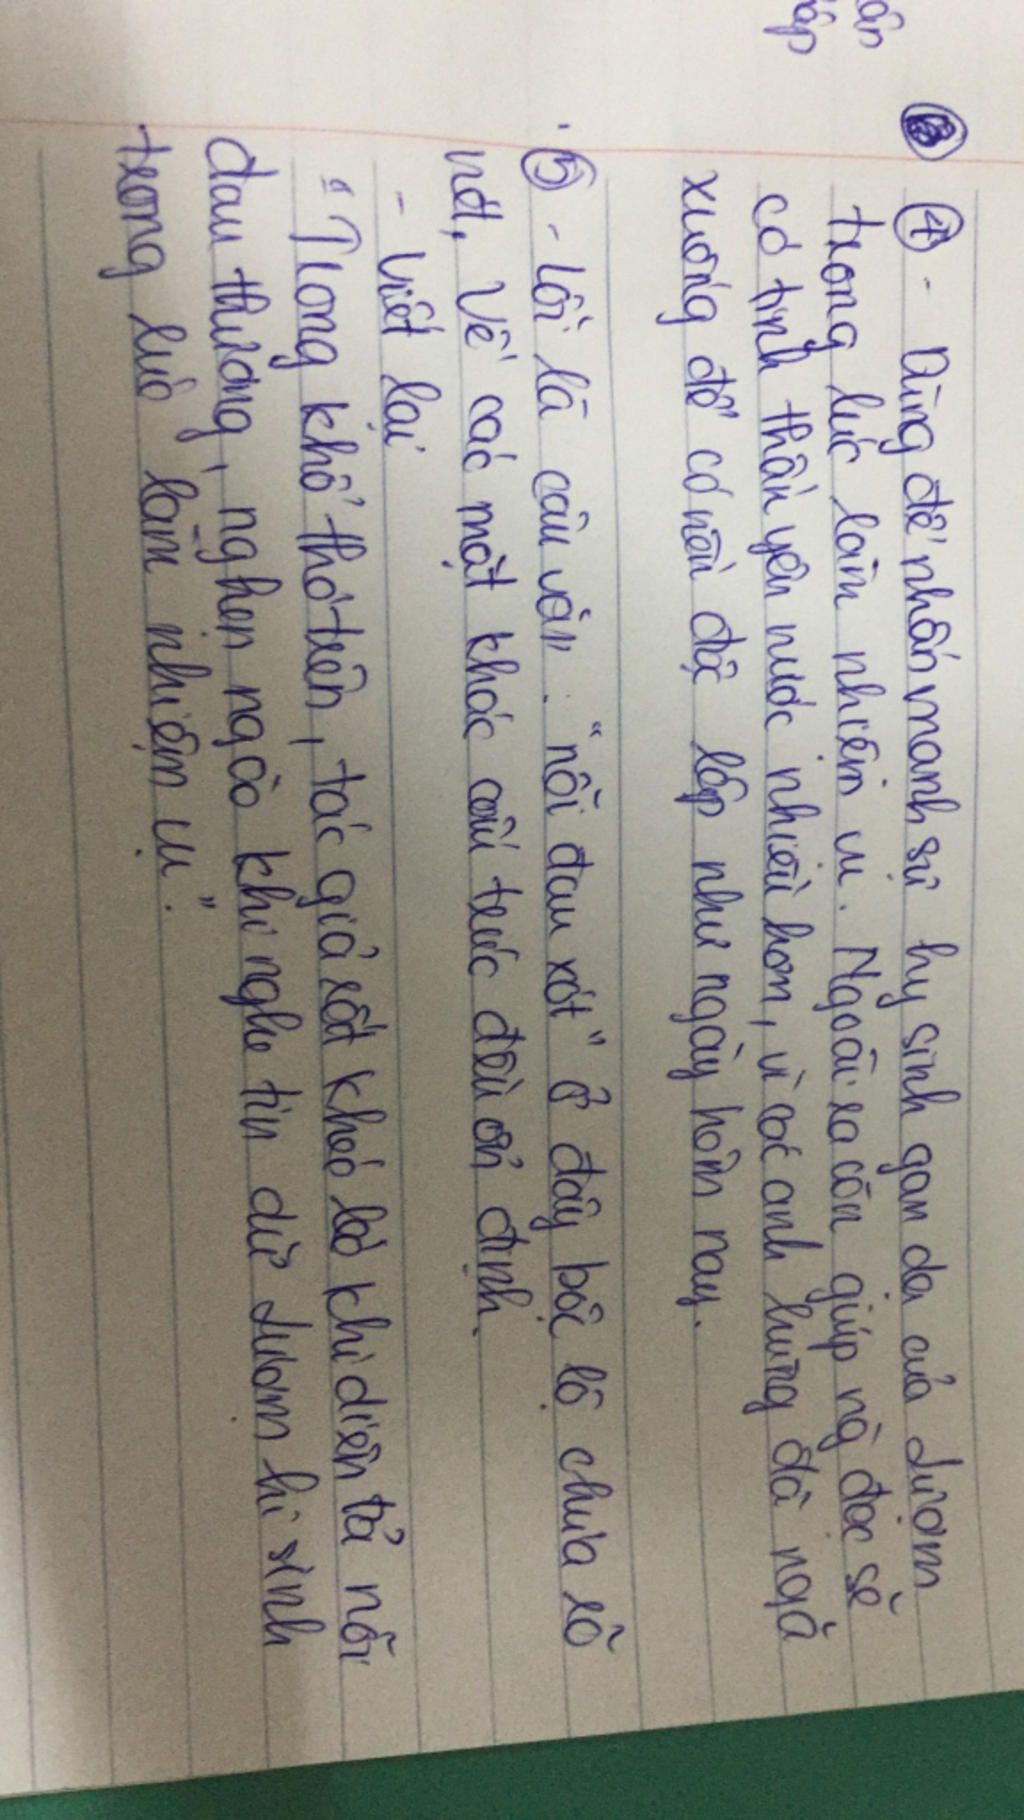 ân
ấp
④ - Dùng để nhấn mạnh sự hy sinh gan dạ của Lượm
trong lúc làm nhiệm vụ. Ngoài ra còn giúp ng đọc sẽ
có tinh thần yêu nước nhiều hơn, vì các anh hùng đã ngã
xuống để có nền độc lập như ngày hôm nay.
⑤ - Lỗi là câu văn: "nỗi đau xót" ở đây bộc lộ chưa rõ
nét, Về các mặt khác cấu trúc đều ổn định.
- Viết lại
"Trong khổ thơ trên, tác giả rất khéo léo khi diễn tả nỗi
đau thương, nghẹn ngào khi nghe tin dữ Lượm hi sinh
trong lúc làm nhiệm vụ".